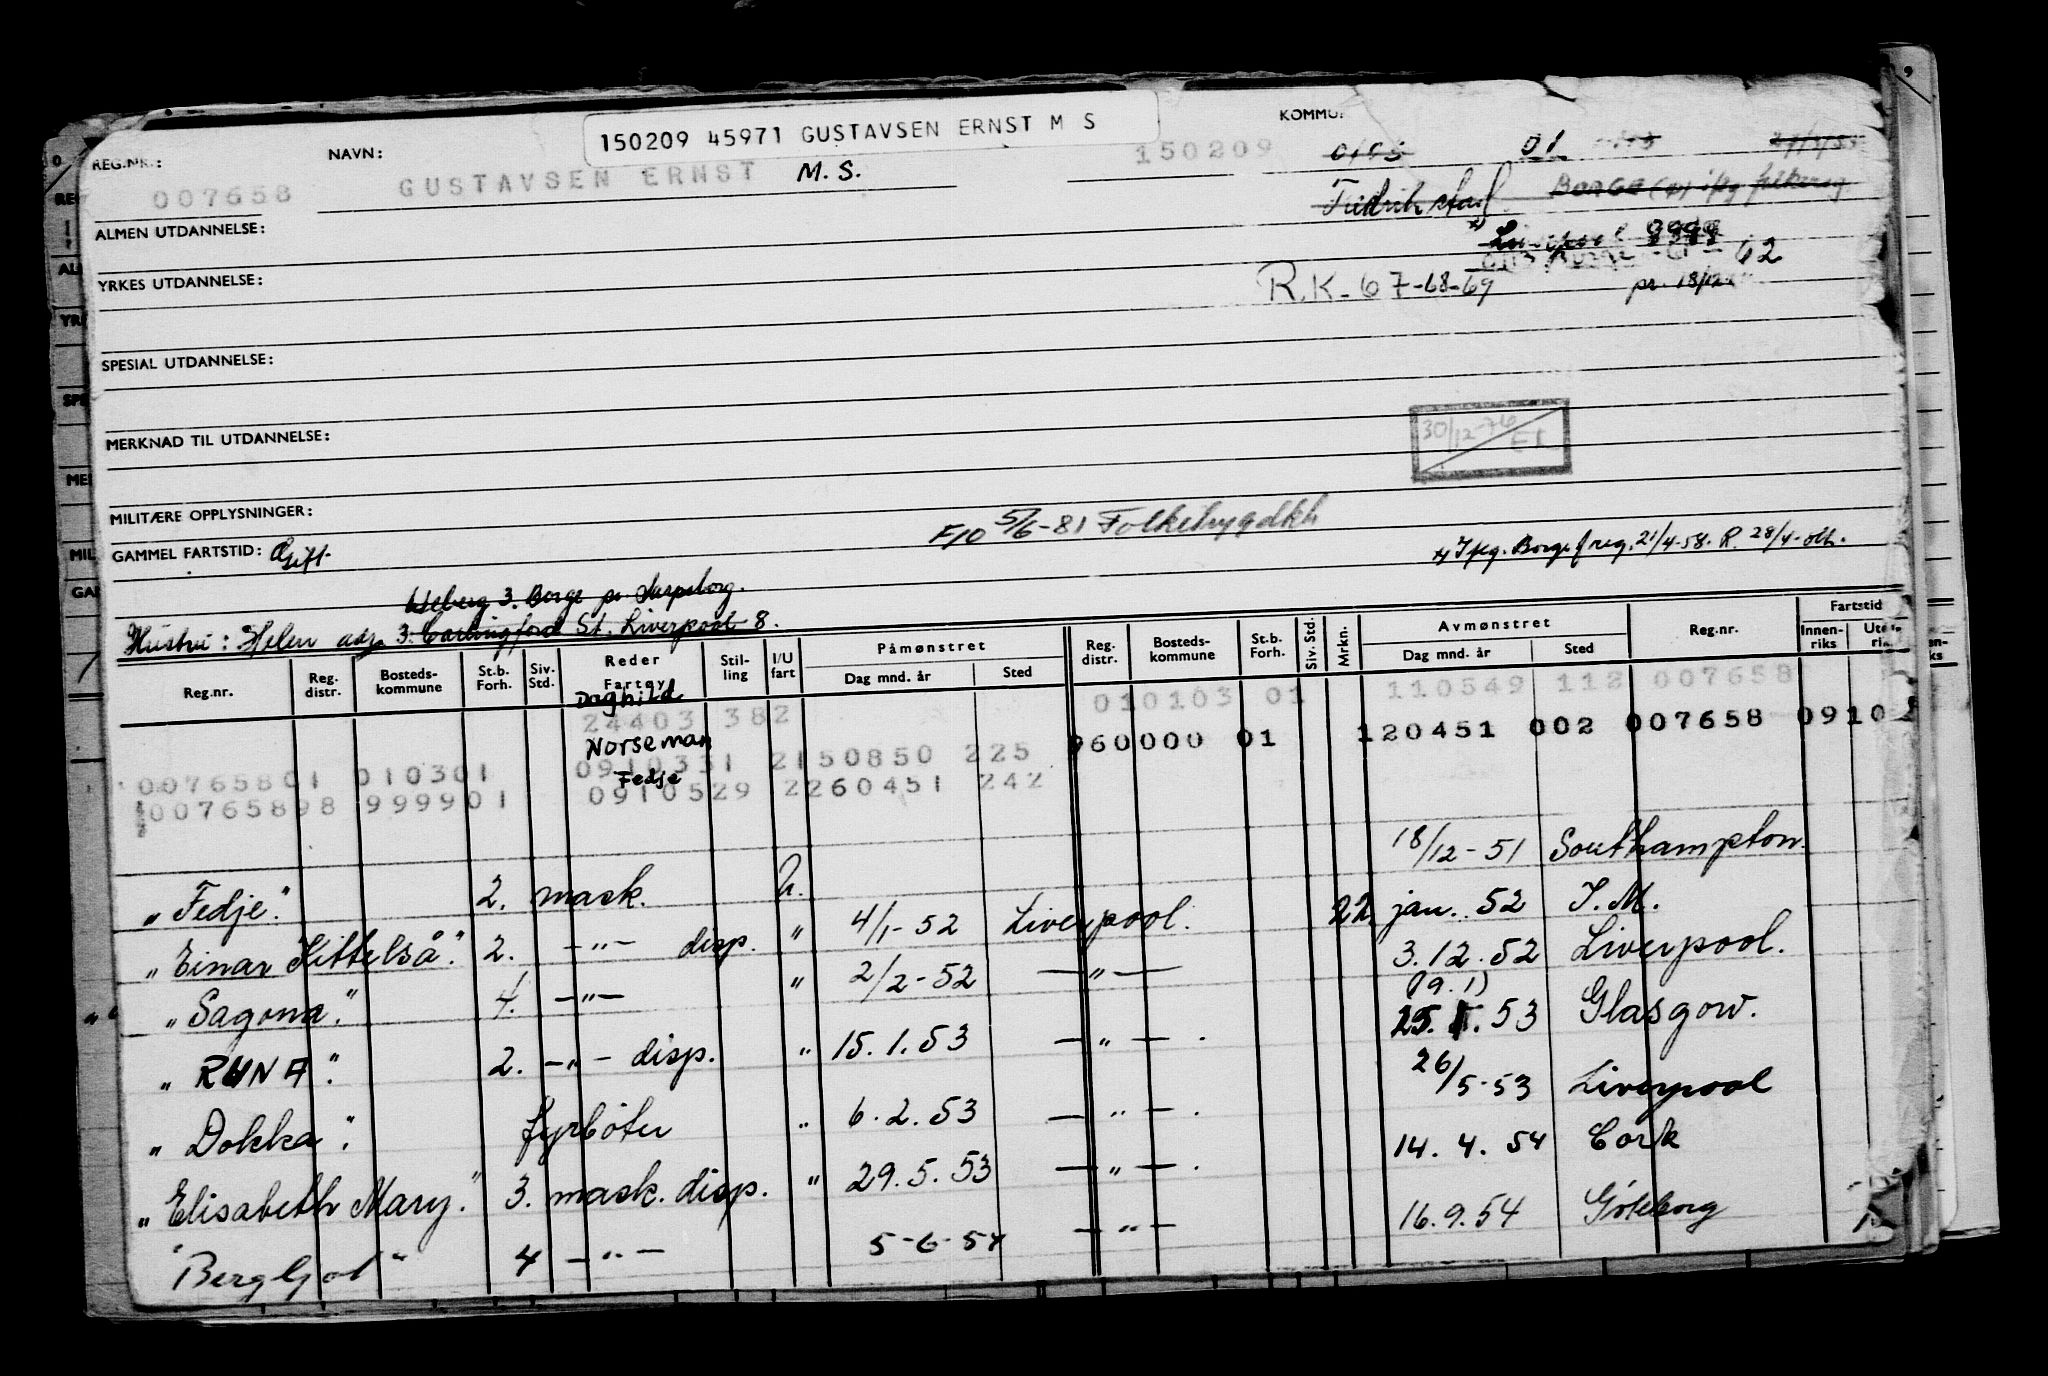 150209 45971 GUSTAVSEN ERNST M S
KOMMU
REG.NR.: 007658 NAVN: GUSTAVSEN ERNST M.S. 150209
01
Fredrikstad
ALMEN UTDANNELSE:
Liverpool 9999
62
YRKES UTDANNELSE:
R.K-67-68-69
SPESIAL UTDANNELSE:
MERKNAD TIL UTDANNELSE:
30/12-76
MILITÆRE OPPLYSNINGER:
5/6-81
GAMMEL FARTSTID: Gift.
3. Borge pr. Sarpsborg.
Hustru: Helen adr. 3. Carlingford St. Liverpool 8.
Reg.nr. Reg. distr. Bosteds-kommune St.b. Forh. Siv. Std. Reder Fartøy Stil-ling I/U fart Påmønstret Dag mnd. år Sted Reg. distr. Bosteds-kommune St.b. Forh. Siv. Std. Mrkn. Avmønstret Dag mnd. år Sted Reg.nr. Fartstid Innen-riks
Daghild
24403 382 010103 01 110549 112 007658
Norseman
960000 01 120451 002 007658 0910
00765801 010301 0910331 2150850 225
Fedje
00765898 999901 0910529 2260451 242
„Fedje". 2. mask. u. 18/12-51 Southampton.
„Einar Kittelså". 2. -„- disp. " 4/1-52 Liverpool. 22 jan. 52 I.M.
„Sagoma". 4. -„- " 2/2-52 -„- 3.12.52 Liverpool.
(19.1)
„RUNA". 2. -„- disp. " 15.1.53 -„-. 25.1.53 Glasgow.
„Dokka". fyrbøter " 6.2.53 -„-. 26/5-53 Liverpool
„Elisabeth Mary". 3. mask. disp. " 29.5.53 -„-. 14.4.54 Cork
"Bergljot" 4 -„- 5-6-54 -„- 16.9.54 Göteborg